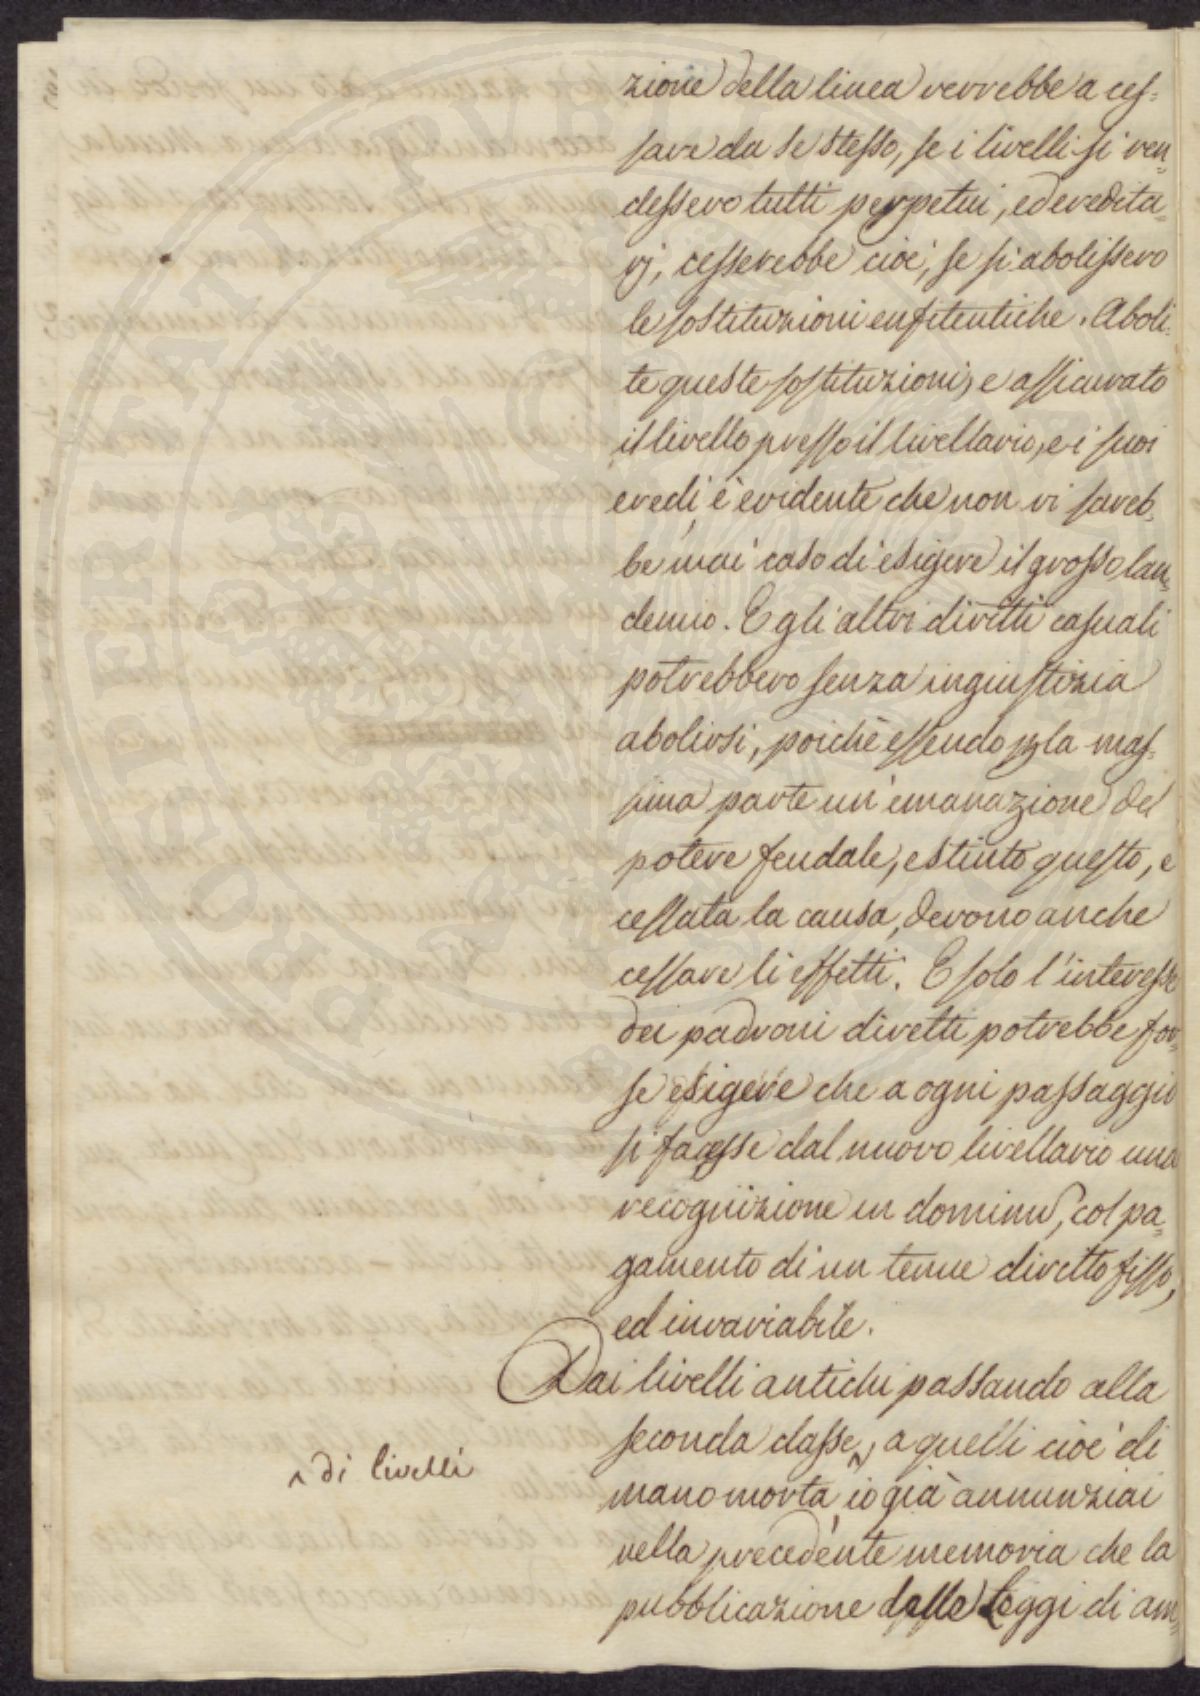 zione della linea verrebbe a ces-
sare da se stesso, se i livelli si ren-
dessero tutti perpetui, ed eredita-
rj, cesserebbe cioè, se si abolissero
le sostituzioni enfiteutiche. Aboli-
te queste sostituzioni, e assicurato
il livello presso il livellario, e i suoi
eredi, è evidente che non vi sareb-
be mai caso di esigere il grosso lau-
demio. E gli altri diritti casuali
potrebbero senza ingiustizia
abolirsi, poichè essendo p la mas-
sima parte un' emanazione del
potere feudale, estinto questo, e
cessata la causa, devono anche
cessare li effetti. E solo l'interesse
dei padroni diretti potrebbe for-
se esigere che a ogni passaggio
si facesse dal nuovo livellario una
recognizione in dominum, col pa-
gamento di un tenue diritto fisso,
ed invariabile.
Dai livelli antichi passando alla
seconda classe ^, a quelli cioè di
^ di livelli
mano morta, io già annunziai
nella precedente memoria che la
pubblicazione delle Leggi di am-